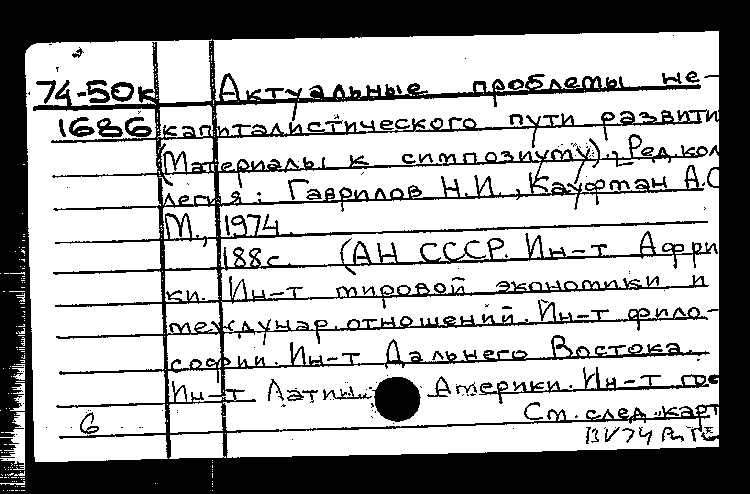 74-50к Актуальные проблемы не-
1686 капиталистического пути развити
(Материалы к симпозиуму). Ред.кол
легия: Гаврилов Н.И., Кауфман А.С
М., 1974.
188с. (АН СССР. Ин-т Афри
ки. Ин-т мировой экономики и
междунар. отношений. Ин-т фило-
софии. Ин-т Дальнего Востока.
Ин-т Латин. Америки. Ин-т
См. след. карт
6